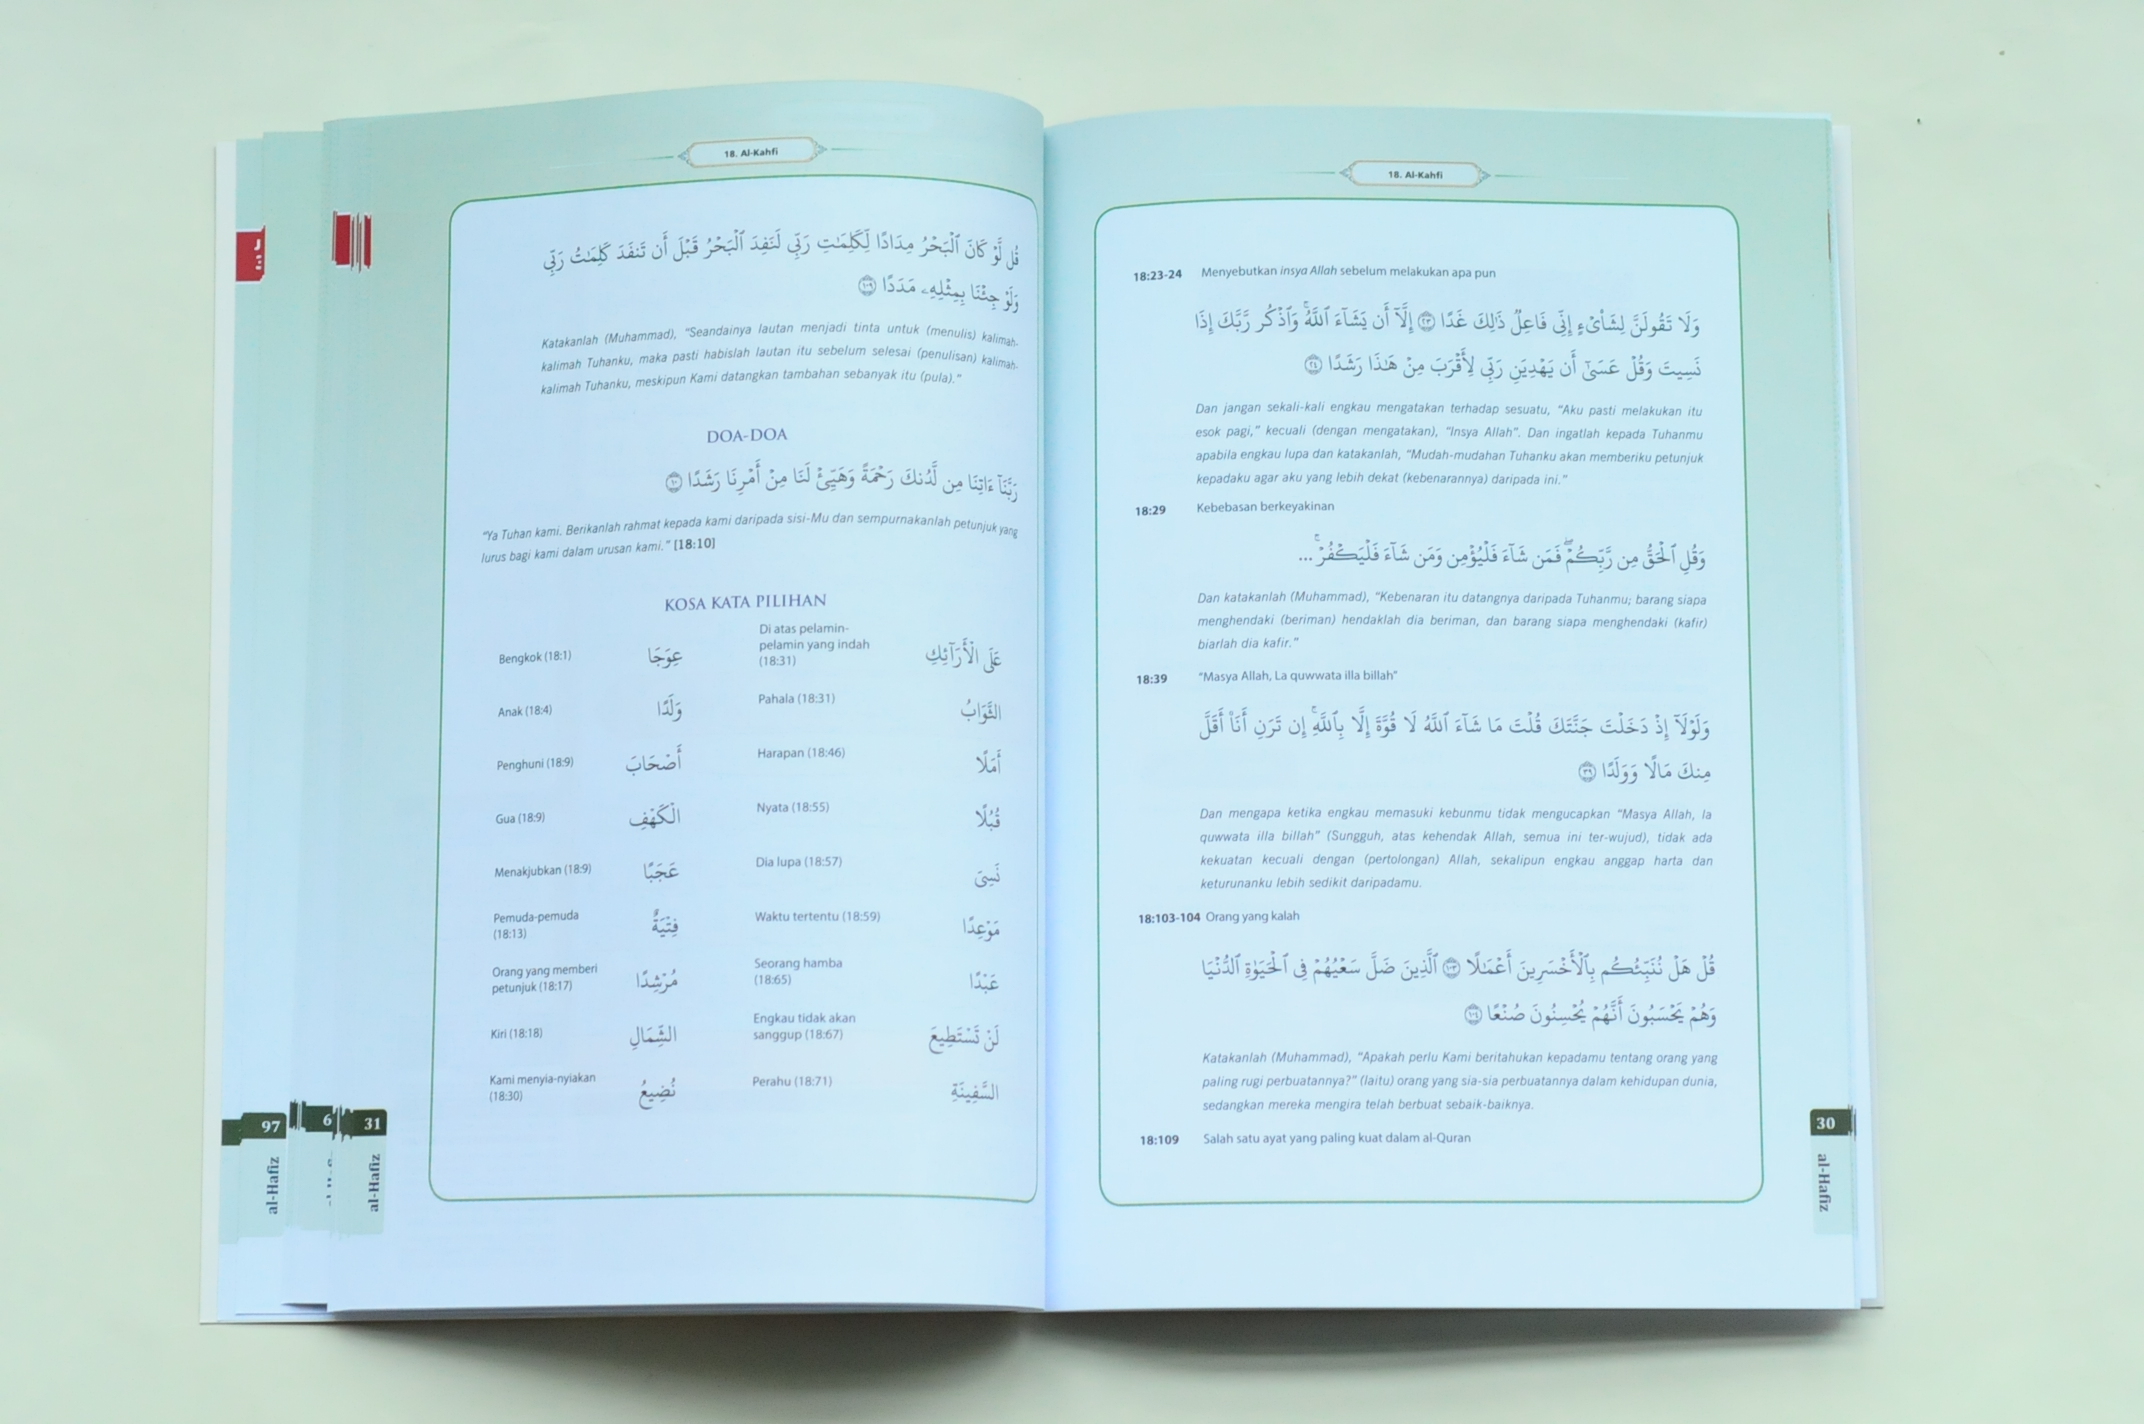 18. Al-Kahfi
18:23-24 Menyebutkan insya Allah sebelum melakukan apa pun
وَلَا تَقُولَنَّ لِشَا۟ىۡءٍ إِنِّى فَاعِلٌ ذَٰلِكَ غَدًا ٢٣ إِلَّآ أَن يَشَآءَ ٱللَّهُۚ وَٱذۡكُر رَّبَّكَ إِذَا
نَسِيتَ وَقُلۡ عَسَىٰٓ أَن يَهۡدِيَنِ رَبِّى لِأَقۡرَبَ مِنۡ هَٰذَا رَشَدًا ٢٤
Dan jangan sekali-kali engkau mengatakan terhadap sesuatu, “Aku pasti melakukan itu
esok pagi,” kecuali (dengan mengatakan), “Insya Allah”. Dan ingatlah kepada Tuhanmu
apabila engkau lupa dan katakanlah, “Mudah-mudahan Tuhanku akan memberiku petunjuk
kepadaku agar aku yang lebih dekat (kebenarannya) daripada ini.”
18:29 Kebebasan berkeyakinan
وَقُلِ ٱلۡحَقُّ مِن رَّبِّكُمۡۖ فَمَن شَآءَ فَلۡيُؤۡمِن وَمَن شَآءَ فَلۡيَكۡفُرۡۚ ...
Dan katakanlah (Muhammad), “Kebenaran itu datangnya daripada Tuhanmu; barang siapa
menghendaki (beriman) hendaklah dia beriman, dan barang siapa menghendaki (kafir)
biarlah dia kafir.”
18:39 “Masya Allah, La quwwata illa billah”
وَلَوۡلَآ إِذۡ دَخَلۡتَ جَنَّتَكَ قُلۡتَ مَا شَآءَ ٱللَّهُ لَا قُوَّةَ إِلَّا بِٱللَّهِۚ إِن تَرَنِ أَنَا۠ أَقَلَّ
مِنكَ مَالًا وَوَلَدًا ٣٩
Dan mengapa ketika engkau memasuki kebunmu tidak mengucapkan “Masya Allah, la
quwwata illa billah” (Sungguh, atas kehendak Allah, semua ini ter-wujud), tidak ada
kekuatan kecuali dengan (pertolongan) Allah, sekalipun engkau anggap harta dan
keturunanku lebih sedikit daripadamu.
18:103-104 Orang yang kalah
قُلۡ هَلۡ نُنَبِّئُكُم بِٱلۡأَخۡسَرِينَ أَعۡمَٰلًا ١٠٣ ٱلَّذِينَ ضَلَّ سَعۡيُهُمۡ فِى ٱلۡحَيَوٰةِ ٱلدُّنۡيَا
وَهُمۡ يَحۡسَبُونَ أَنَّهُمۡ يُحۡسِنُونَ صُنۡعًا ١٠٤
Katakanlah (Muhammad), “Apakah perlu Kami beritahukan kepadamu tentang orang yang
paling rugi perbuatannya?” (Iaitu) orang yang sia-sia perbuatannya dalam kehidupan dunia,
sedangkan mereka mengira telah berbuat sebaik-baiknya.
18:109 Salah satu ayat yang paling kuat dalam al-Quran
30
al-Hafiz
18. Al-Kahfi
قُل لَّوۡ كَانَ ٱلۡبَحۡرُ مِدَادًا لِّكَلِمَٰتِ رَبِّى لَنَفِدَ ٱلۡبَحۡرُ قَبۡلَ أَن تَنفَدَ كَلِمَٰتُ رَبِّى
وَلَوۡ جِئۡنَا بِمِثۡلِهِۦ مَدَدًا ١٠٩
Katakanlah (Muhammad), “Seandainya lautan menjadi tinta untuk (menulis) kalimah-
kalimah Tuhanku, maka pasti habislah lautan itu sebelum selesai (penulisan) kalimah-
kalimah Tuhanku, meskipun Kami datangkan tambahan sebanyak itu (pula).”
DOA-DOA
رَبَّنَآ ءَاتِنَا مِن لَّدُنكَ رَحۡمَةً وَهَيِّئۡ لَنَا مِنۡ أَمۡرِنَا رَشَدًا ١٠
“Ya Tuhan kami. Berikanlah rahmat kepada kami daripada sisi-Mu dan sempurnakanlah petunjuk yang
lurus bagi kami dalam urusan kami.” [18:10]
KOSA KATA PILIHAN
Bengkok (18:1) عِوَجَا
Anak (18:4) وَلَدًا
Penghuni (18:9) أَصْحَابَ
Gua (18:9) الْكَهْفِ
Menakjubkan (18:9) عَجَبًا
Pemuda-pemuda
(18:13) فِتْيَةٌ
Orang yang memberi
petunjuk (18:17) مُرْشِدًا
Kiri (18:18) الشِّمَالِ
Kami menyia-nyiakan
(18:30) نُضِيعُ
Di atas pelamin-
pelamin yang indah
(18:31) عَلَى الْأَرَآئِكِ
Pahala (18:31) الثَّوَابُ
Harapan (18:46) أَمَلًا
Nyata (18:55) قُبُلًا
Dia lupa (18:57) نَسِىَ
Waktu tertentu (18:59) مَوْعِدًا
Seorang hamba
(18:65) عَبْدًا
Engkau tidak akan
sanggup (18:67) لَنْ تَسْتَطِيعَ
Perahu (18:71) السَّفِينَةِ
31
al-Hafiz
6
97
al-Hafiz